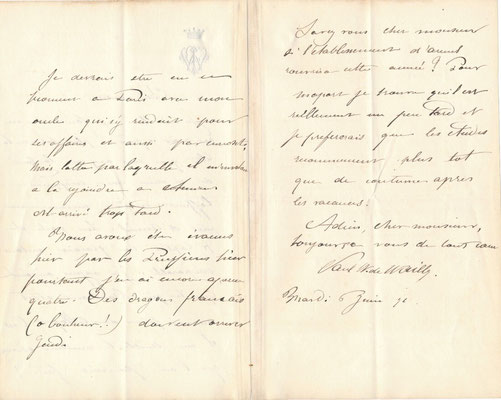 Je devrais être en ce
moment à Paris avec mon
oncle qui s'y rendait pour
ses affaires et aussi par curiosité.
Mais la lettre par laquelle il
à le rejoindre à
est arrivé trop tard.
Nous avons été évacués
hier par les Prussiens hier
pourtant j'en ai encore
quatre. Des dragons français
(o bonheur!!) doivent arriver
Jeudi
Savez vous cher monsieur
si l'établissement d'
ouvrira cette année? Pour
ma part je trouve qu'il est
réellement un peu tard et
je préfèrerais que les études
recommencent plus tôt
que de coutume après
les vacances.
Adieu, cher monsieur,
toujours à vous de tout cœur
Paul de Wailly
Mardi 6 Juin 71